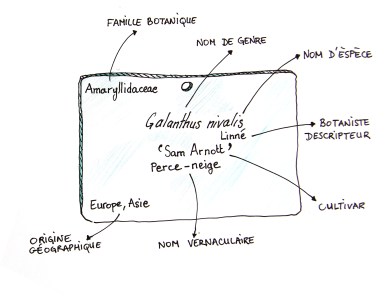 FAMILLE BOTANIQUE
NOM DE GENRE
NOM D'ÈSPÈCE
Amaryllidaceae
Galanthus nivalis
Linné
BOTANISTE
DESCRIPTEUR
'Sam Arnott'
Perce-neige
CULTIVAR
Europe, Asie
ORIGINE
GÉOGRAPHIQUE
NOM VERNACULAIRE